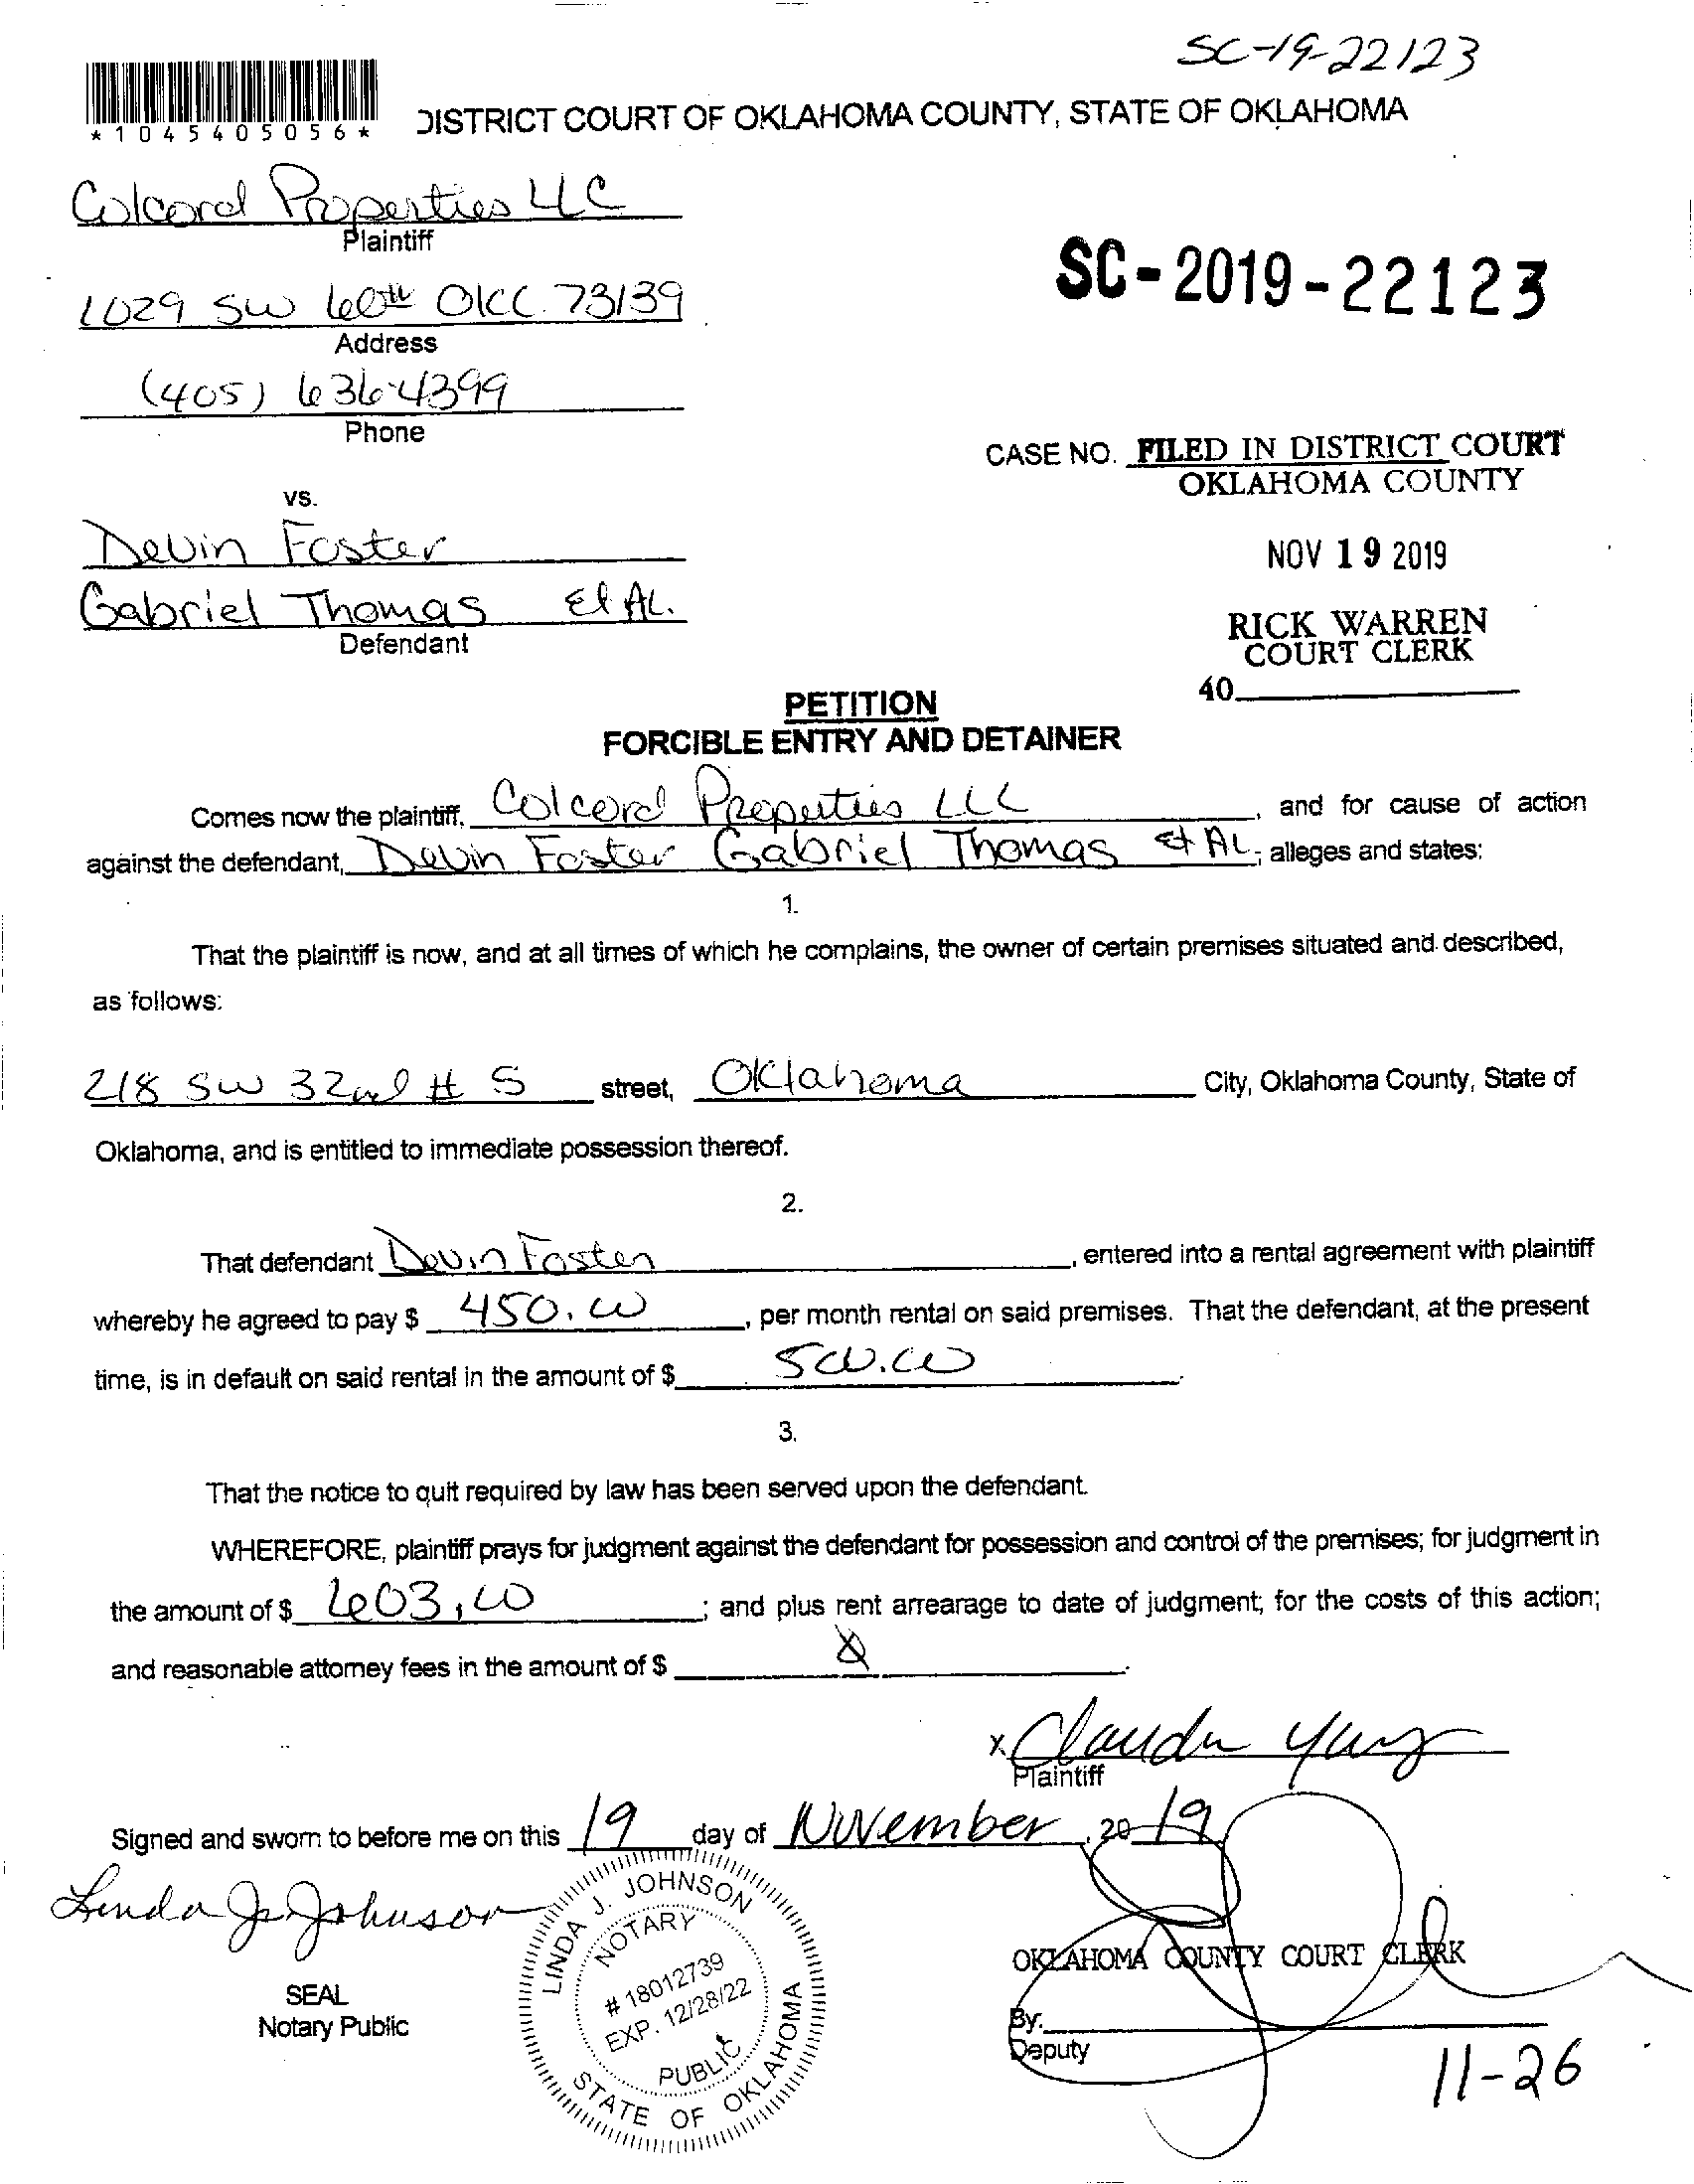 SC-19-22123
*1045405056*
DISTRICT COURT OF OKLAHOMA COUNTY, STATE OF OKLAHOMA
Colcord Properties LLC
Plaintiff
1029 SW 60th OKC. 73139
Address
(405) 636-4399
Phone
SC-2019-22123
CASE NO. FILED IN DISTRICT COURT
OKLAHOMA COUNTY
vs.
Devin Foster
Gabriel Thomas Et AL.
Defendant
NOV 19 2019
RICK WARREN
COURT CLERK
40
PETITION
FORCIBLE ENTRY AND DETAINER
Comes now the plaintiff, Colcord Properties LLC, and for cause of action
against the defendant, Devin Foster Gabriel Thomas et AL; alleges and states:
1.
That the plaintiff is now, and at all times of which he complains, the owner of certain premises situated and described,
as follows:
218 SW 32nd # 5 street, Oklahoma City, Oklahoma County, State of
Oklahoma, and is entitled to immediate possession thereof.
2.
That defendant Devin Foster, entered into a rental agreement with plaintiff
whereby he agreed to pay $ 450.00, per month rental on said premises. That the defendant, at the present
time, is in default on said rental in the amount of $ 500.00
3.
That the notice to quit required by law has been served upon the defendant.
WHEREFORE, plaintiff prays for judgment against the defendant for possession and control of the premises; for judgment in
the amount of $ 603.00; and plus rent arrearage to date of judgment; for the costs of this action;
and reasonable attorney fees in the amount of $
x Claudia
Plaintiff
Signed and sworn to before me on this 19 day of November, 2019
Linda J. Johnson
SEAL
Notary Public
LINDA J. JOHNSON
NOTARY
# 18012739
EXP. 12/28/22
PUBLIC
STATE OF OKLAHOMA
OKLAHOMA COUNTY COURT CLERK
By:
Deputy
11-26